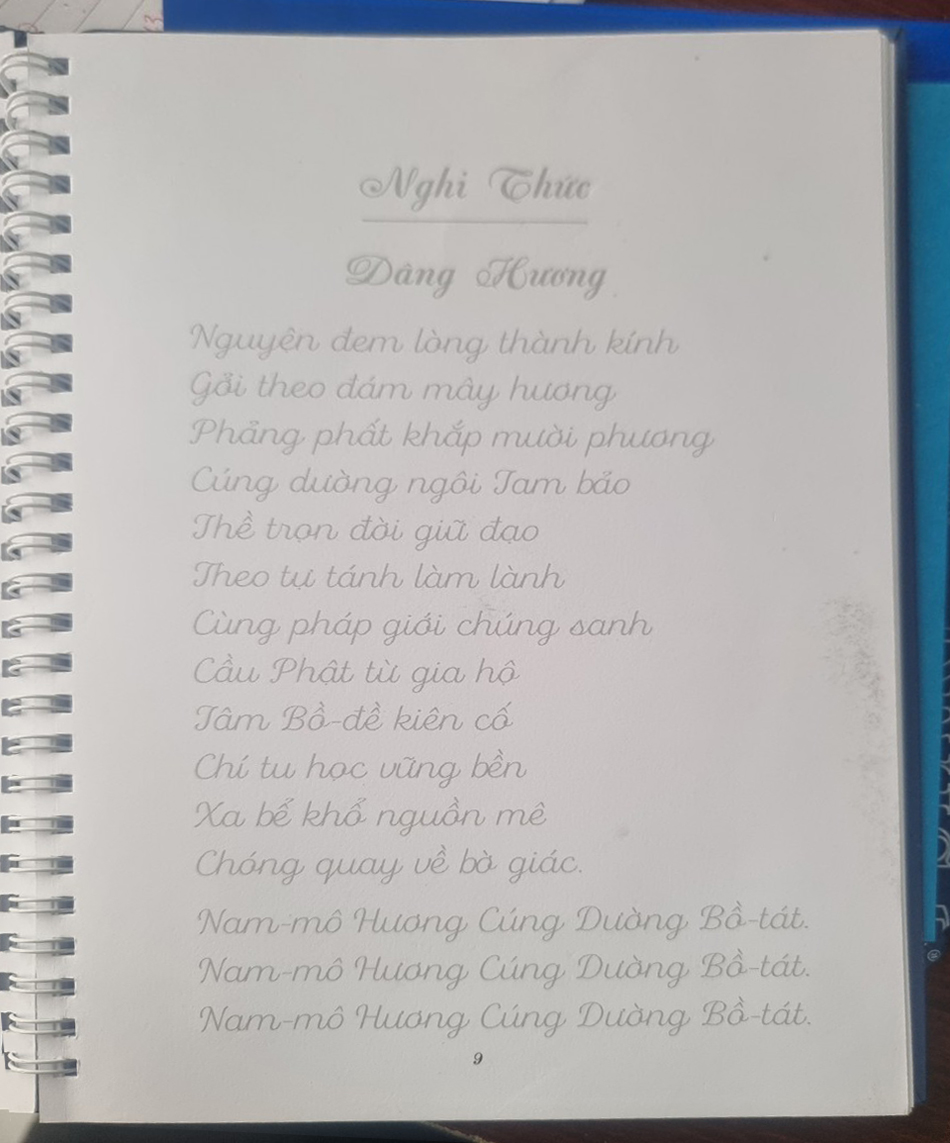 Nghi Thức
Dâng Hương
Nguyện đem lòng thành kính
Gởi theo đám mây hương
Phảng phất khắp mười phương
Cúng dường ngôi Tam bảo
Thề trọn đời giữ đạo
Theo tự tánh làm lành
Cùng pháp giới chúng sanh
Cầu Phật từ gia hộ
Tâm Bồ-đề kiên cố
Chí tu học vững bền
Xa bể khổ nguồn mê
Chóng quay về bờ giác.
Nam-mô Hương Cúng Dường Bồ-tát.
Nam-mô Hương Cúng Dường Bồ-tát.
Nam-mô Hương Cúng Dường Bồ-tát.
9